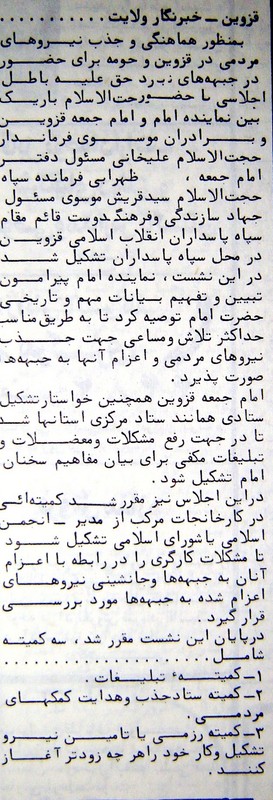 قزوین ــ خبرنگار ولایت ............
بمنظور هماهنگی و جذب نیروهای
مردمی در قزوین و حومه برای حضور
در جبهه‌های نبرد حق علیه باطل
اجلاسی با حضور حجت‌الاسلام باریک
بین نماینده امام و امام جمعه قزوین
و برادران موسوی فرماندار
حجت‌الاسلام علیخانی مسئول دفتر
امام جمعه ، ظهرابی فرمانده سپاه
حجت‌الاسلام سیدقریش موسوی مسئول
جهاد سازندگی وفرهنگدوست قائم مقام
سپاه پاسداران انقلاب اسلامی قزوین
در محل سپاه پاسداران تشکیل شد
در این نشست ، نماینده امام پیرامون
تبیین و تفهیم بیانات مهم و تاریخی
حضرت امام توصیه کرد تا به طریق مناسب
حداکثر تلاش ومساعی جهت جذب
نیروهای مردمی و اعزام آنها به جبهه‌ها
صورت پذیرد .
امام جمعه قزوین همچنین خواستار تشکیل
ستادی همانند ستاد مرکزی استانها شد
تا در جهت رفع مشکلات ومعضلات و
تبلیغات مکفی برای بیان مفاهیم سخنان
امام تشکیل شود .
دراین اجلاس نیز مقرر شد کمیته‌ائی
در کارخانجات مرکب از مدیر ــ انجمن
اسلامی یا شورای اسلامی تشکیل شود
تا مشکلات کارگری را در رابطه با اعزام
آنان به جبهه‌ها وجانشینی نیروهای
اعزام شده به جبهه‌ها مورد بررسی
قرار گیرد .
درپایان این نشست مقرر شد ، سه کمیته
شامل ........................
۱ــ کمیتهٔ تبلیغات .
۲ــ کمیته ستاد جذب وهدایت کمکهای
مردمی .
۳ــ کمیته رزمی یا تامین نیرو
تشکیل وکار خود را هر چه زودتر آغاز
کنند .